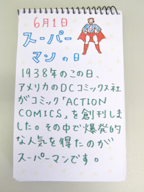 6月1日
スーパー
マンの日
1938年のこの日、
アメリカのDCコミックス社
がコミック「ACTION
COMICS」を創刊しま
した。その中で爆発的
な人気を得たのが
スーパーマンです。